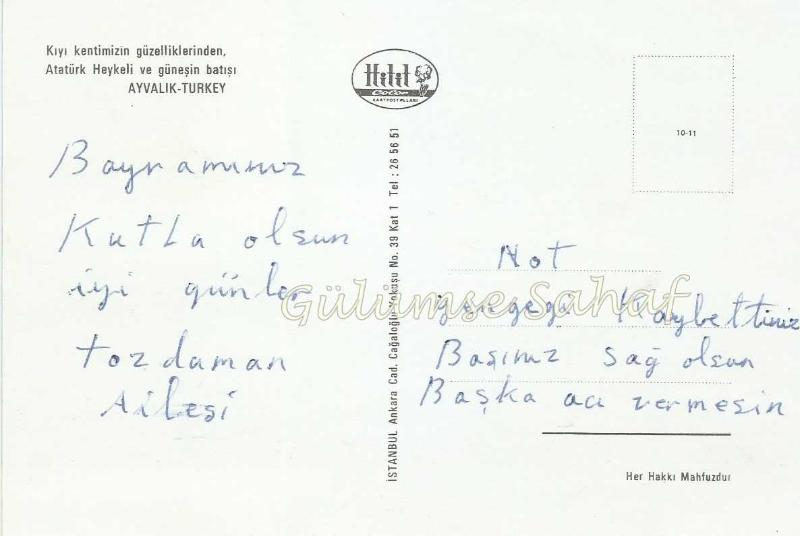 Kıyı kentimizin güzelliklerinden,
Atatürk Heykeli ve güneşin batışı
AYVALIK-TURKEY
Bayramınız
Kutla olsun
iyi günler
Tozdaman
Ailesi
Hitit
Color
KARTPOSTALLARI
İSTANBUL Ankara Cad. Cağaloğlu Yokuşu No. 39 Kat 1 Tel : 26 56 51
10-11
Not
Yengegi Kaybettiniz
Başımız sağ olsun
Başka acı vermesin
Gülümse Sahaf
Her Hakkı Mahfuzdur